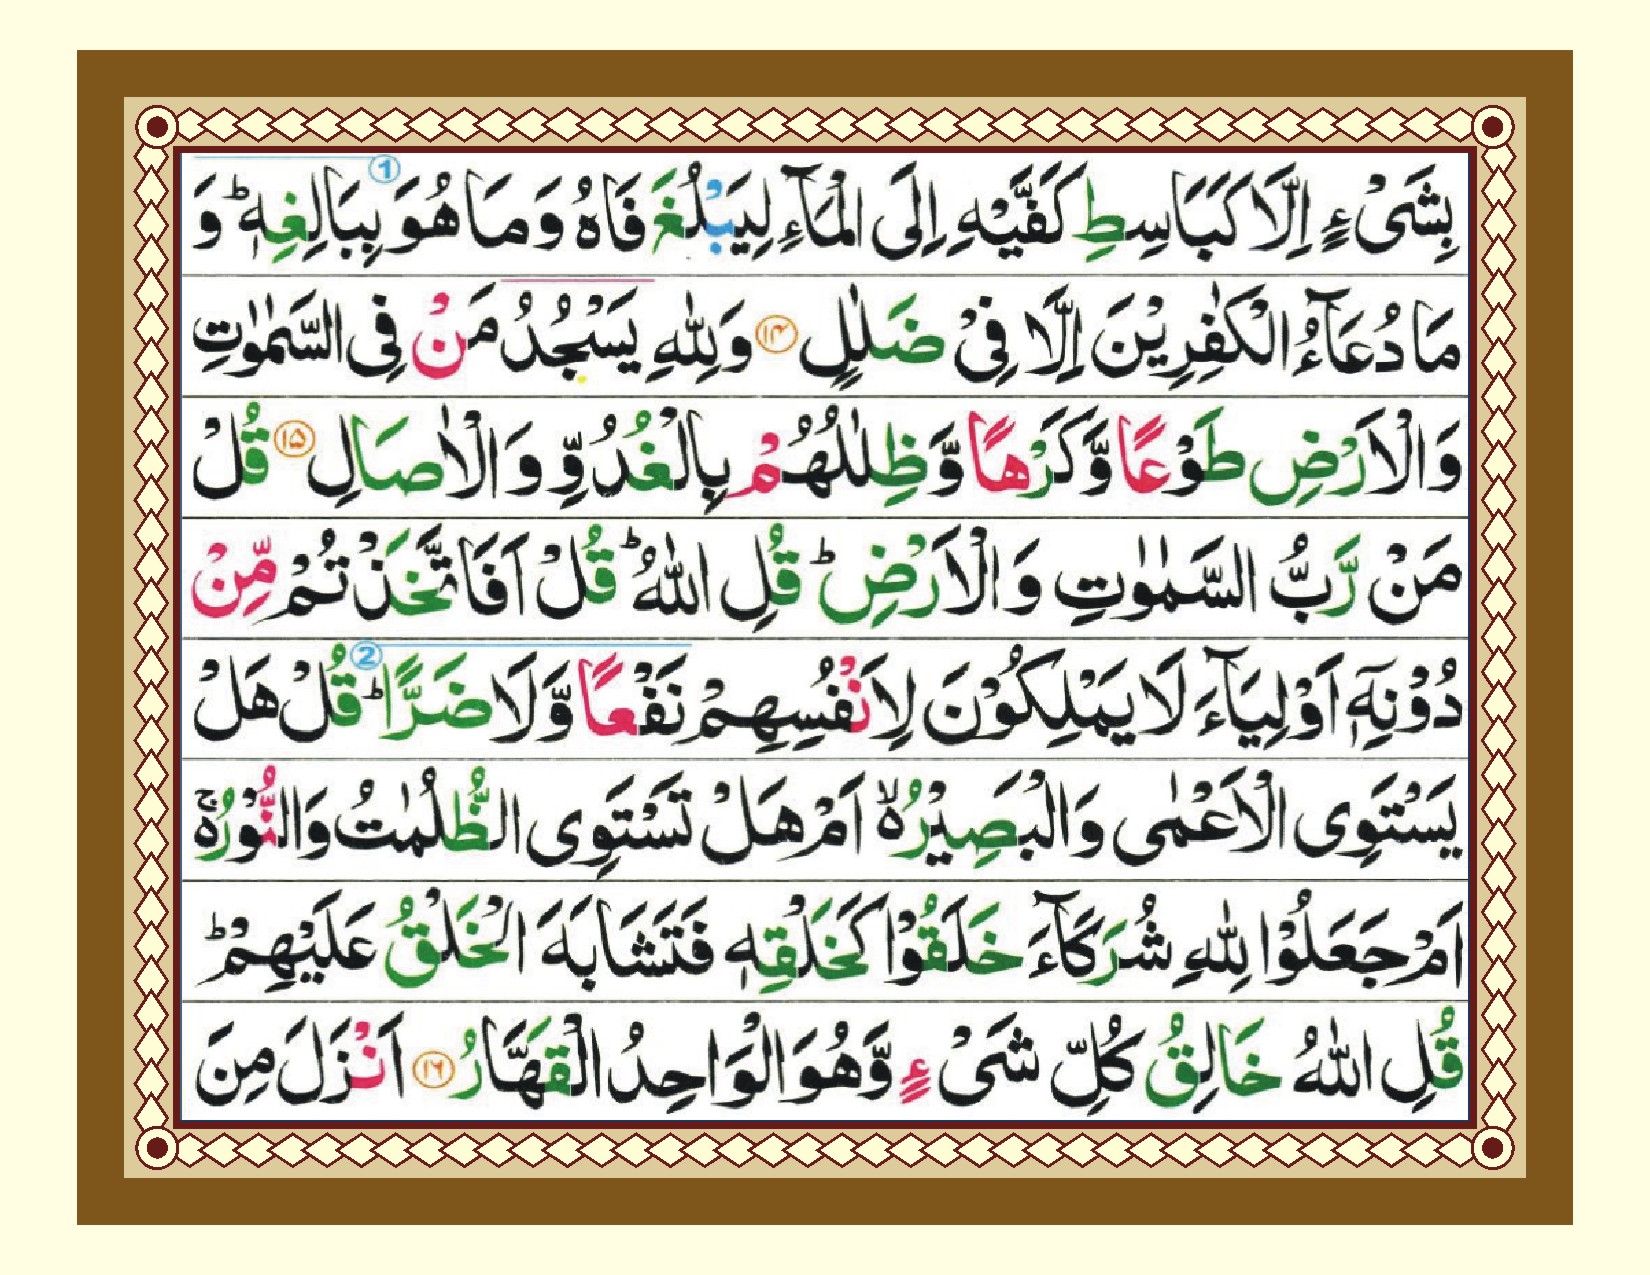 بِشَیْءٍ اِلَّا كَبَاسِطِ كَفَّیْهِ اِلَی الْمَآءِ لِیَبْلُغَ فَاهُ وَ مَا هُوَ بِبَالِغِهٖ ؕ وَ ①
مَا دُعَآءُ الْكٰفِرِیْنَ اِلَّا فِیْ ضَلٰلٍ ۱۴ وَلِلّٰهِ یَسْجُدُ مَنْ فِی السَّمٰوٰتِ
وَالْاَرْضِ طَوْعًا وَّكَرْهًا وَّظِلٰلُهُمْ بِالْغُدُوِّ وَالْاٰصَالِ ۱۵ قُلْ
مَنْ رَّبُّ السَّمٰوٰتِ وَالْاَرْضِ ؕ قُلِ اللّٰهُ ؕ قُلْ اَفَاتَّخَذْتُمْ مِّنْ
دُوْنِهٖۤ اَوْلِیَآءَ لَا یَمْلِكُوْنَ لِاَنْفُسِهِمْ نَفْعًا وَّلَا ضَرًّا ؕ ② قُلْ هَلْ
یَسْتَوِی الْاَعْمٰی وَالْبَصِیْرُ ۙ۬ اَمْ هَلْ تَسْتَوِی الظُّلُمٰتُ وَالنُّوْرُ ۚ۬
اَمْ جَعَلُوْا لِلّٰهِ شُرَكَآءَ خَلَقُوْا كَخَلْقِهٖ فَتَشَابَهَ الْخَلْقُ عَلَیْهِمْ ؕ
قُلِ اللّٰهُ خَالِقُ كُلِّ شَیْءٍ وَّهُوَ الْوَاحِدُ الْقَهَّارُ ۱۶ اَنْزَلَ مِنَ